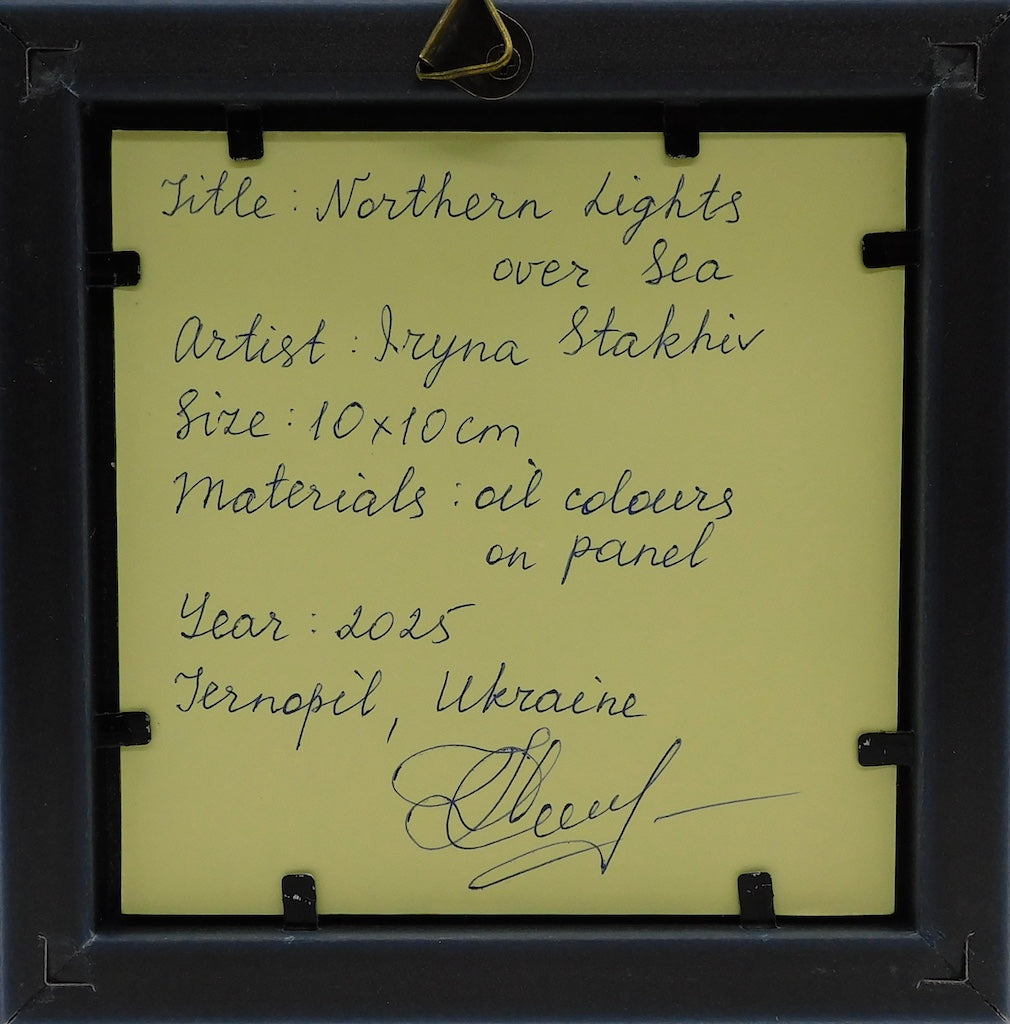 Title: Northern Lights
over Sea
Artist: Iryna Stakhiv
Size: 10x10cm
Materials: oil colours
on panel
Year: 2025
Ternopil, Ukraine